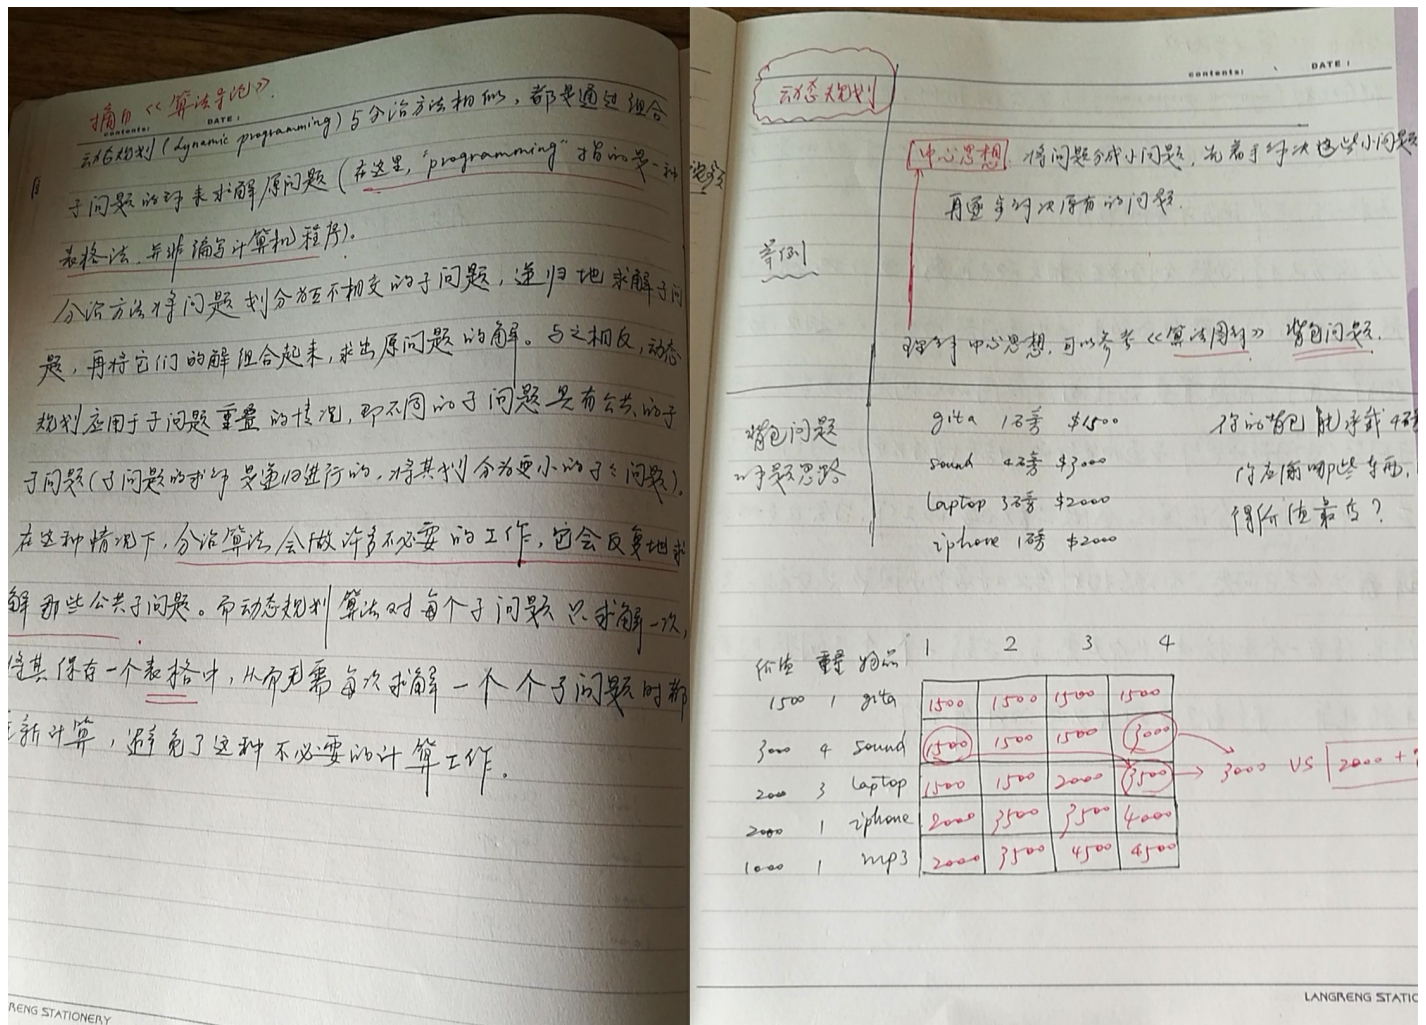 摘自《算法导论》.
contents: DATE:
动态规划(dynamic programming)与分治方法相似，都是通过组合
子问题的解来求解原问题(在这里,"programming"指的是一种
表格法,并非编写计算机程序).
分治方法将问题划分为互不相交的子问题，递归地求解子问
题，再将它们的解组合起来，求出原问题的解。与之相反,动态
规划应用于子问题重叠的情况，即不同的子问题具有公共的子
子问题(子问题的求解是递归进行的,将其划分为更小的子子问题).
在这种情况下,分治算法会做许多不必要的工作,它会反复地求
解那些公共子问题。而动态规划算法对每个子问题只求解一次,
将其保存一个表格中,从而无需每次求解一个个子问题时都
新计算,避免了这种不必要的计算工作.
RENG STATIONERY
contents: DATE:
动态规划
中心思想: 将问题分成小问题,先着手解决这些小问题
再逐步解决原有的问题.
举例
理解中心思想,可以参考《算法图解》背包问题.
背包问题
解题思路
gita 1磅 $1500
sound 4磅 $3000
laptop 3磅 $2000
iphone 1磅 $2000
你的背包能承载4磅
你应偷哪些东西,
得价值最高?
价值 重量 物品 1 2 3 4
1500 1 gita 1500 1500 1500 1500
3000 4 sound 1500 1500 1500 3000
2000 3 laptop 1500 1500 2000 3500 → 3000 VS 2000 +
2000 1 iphone 2000 3500 3500 4000
1000 1 mp3 2000 3500 4500 4500
LANGRENG STATIO